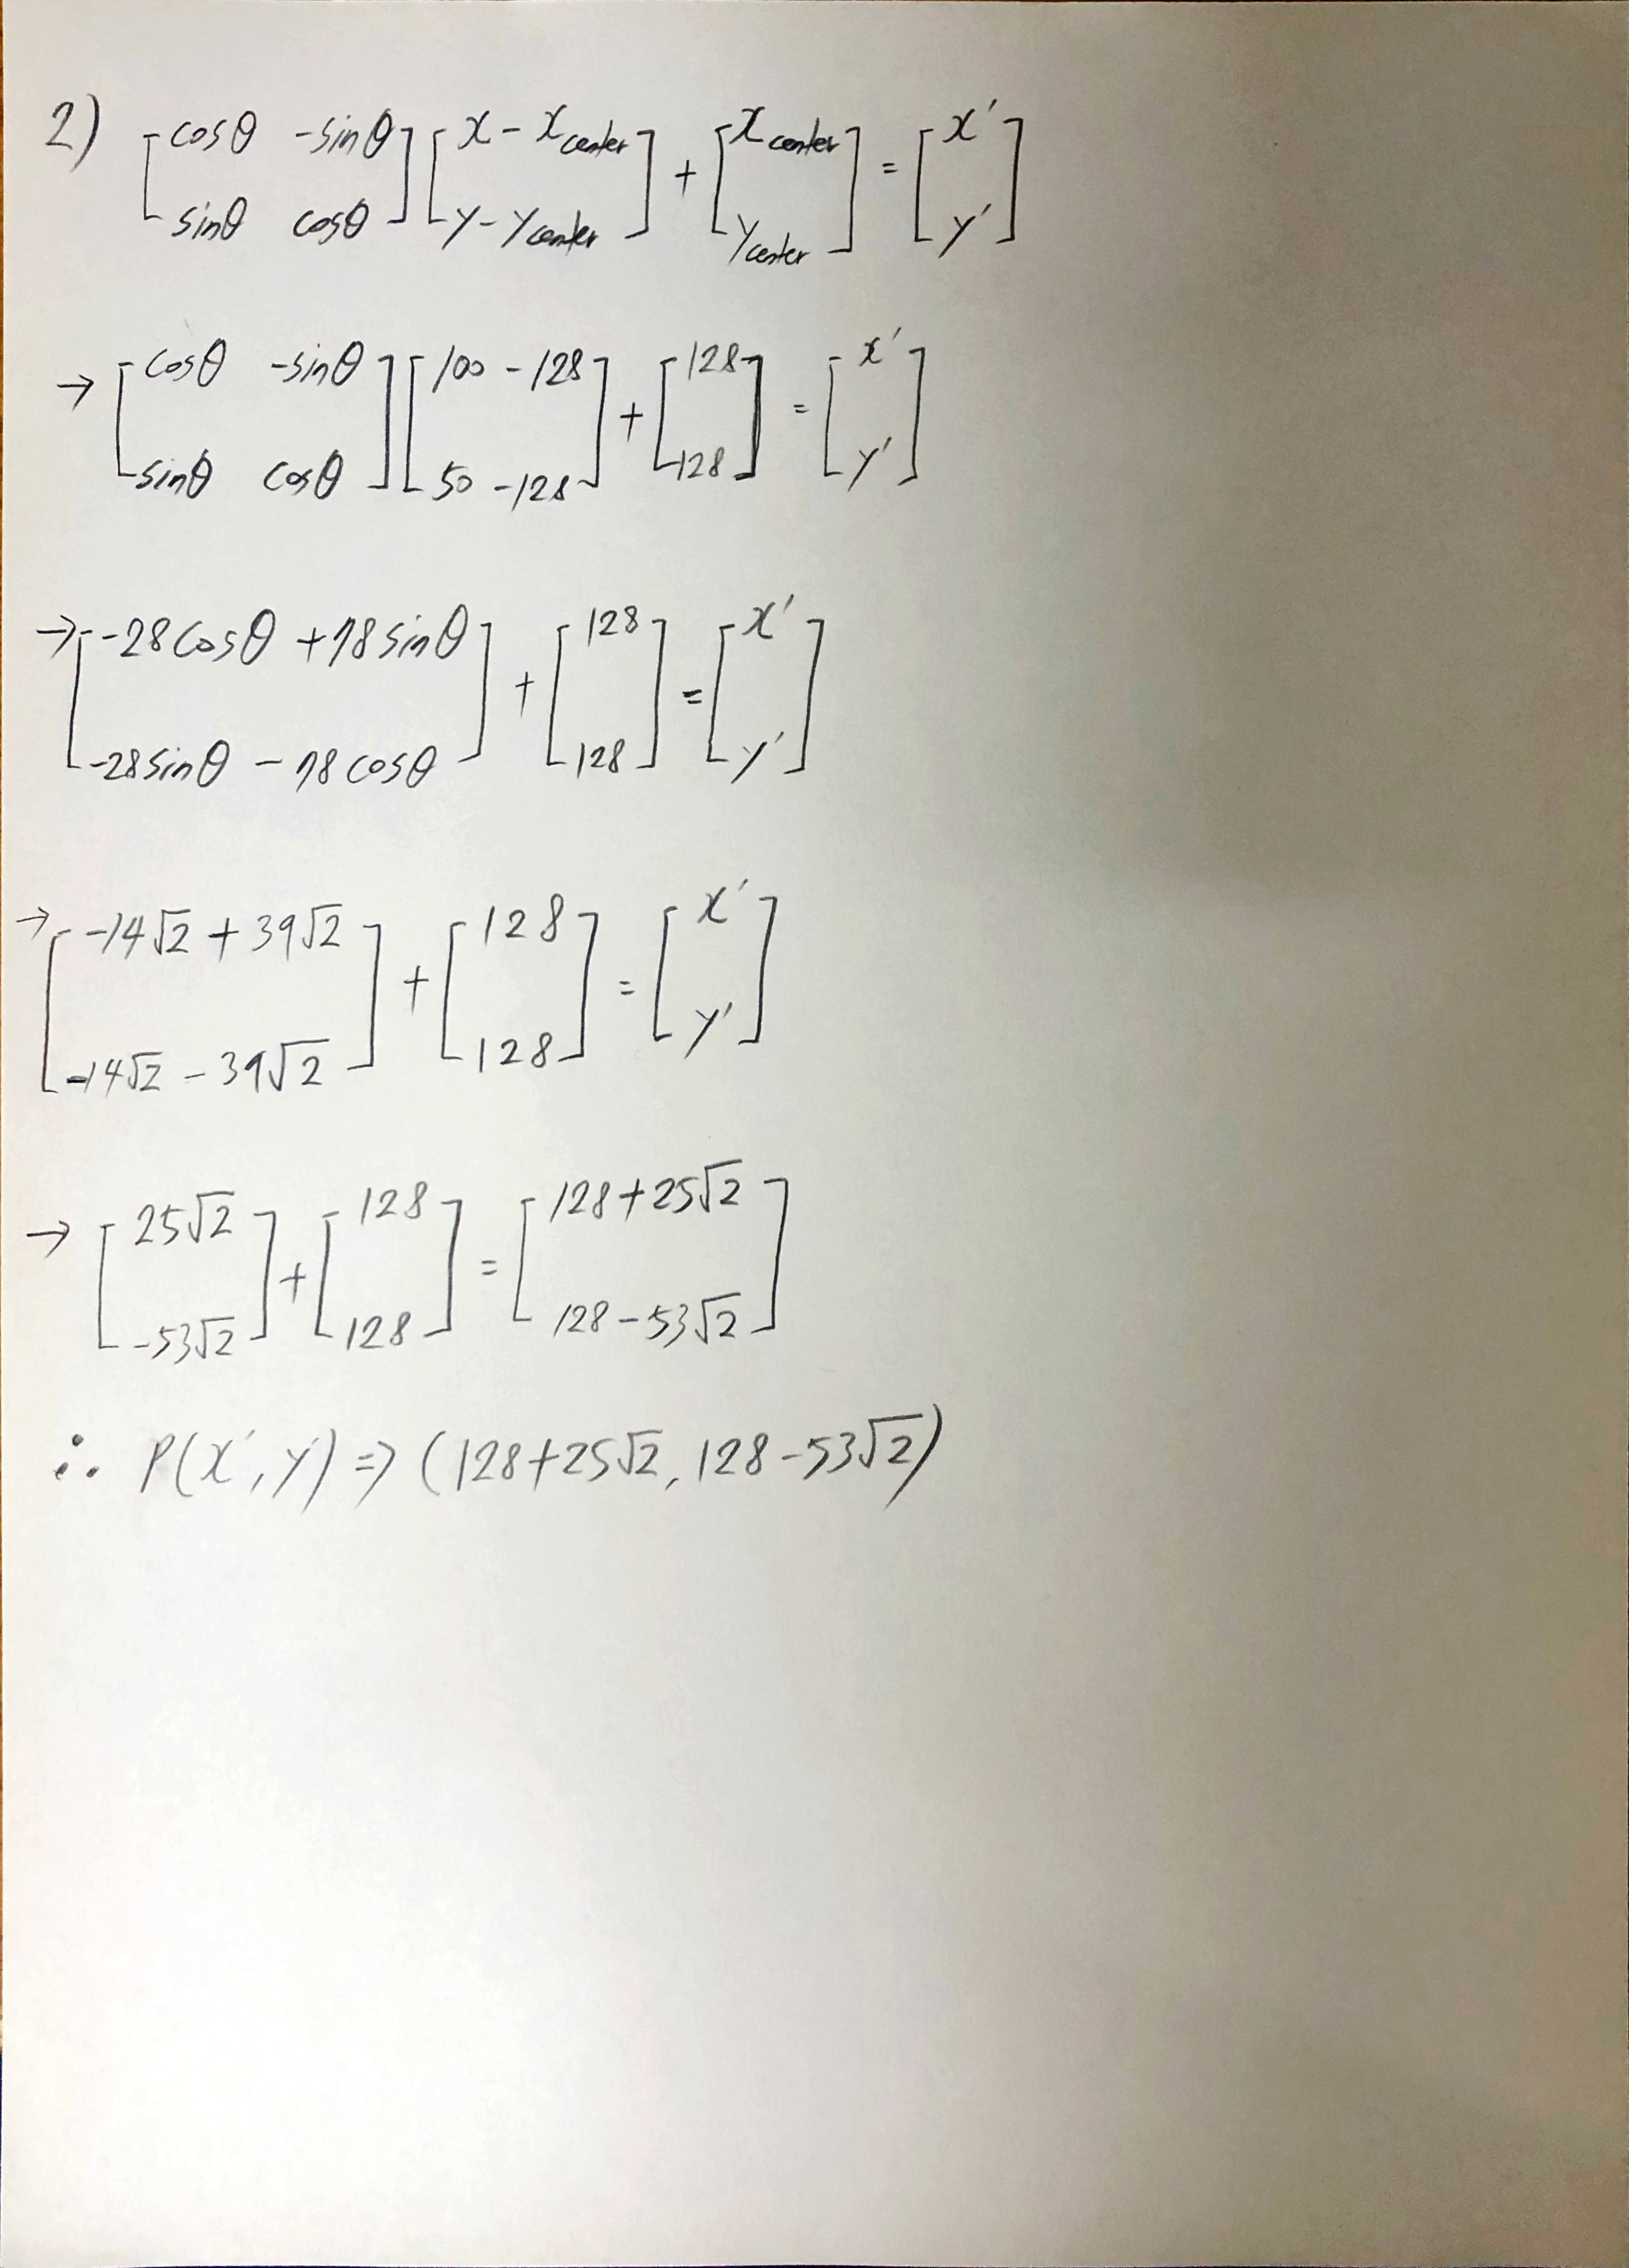 2) [cosθ -sinθ; sinθ cosθ] [x - x_center; y - y_center] + [x_center; y_center] = [x'; y']
→ [cosθ -sinθ; sinθ cosθ] [100 - 128; 50 - 128] + [128; 128] = [x'; y']
→ [-28cosθ + 78sinθ; -28sinθ - 78cosθ] + [128; 128] = [x'; y']
→ [-14√2 + 39√2; -14√2 - 39√2] + [128; 128] = [x'; y']
→ [25√2; -53√2] + [128; 128] = [128+25√2; 128-53√2]
∴ P(x', y') ⇒ (128+25√2, 128-53√2)